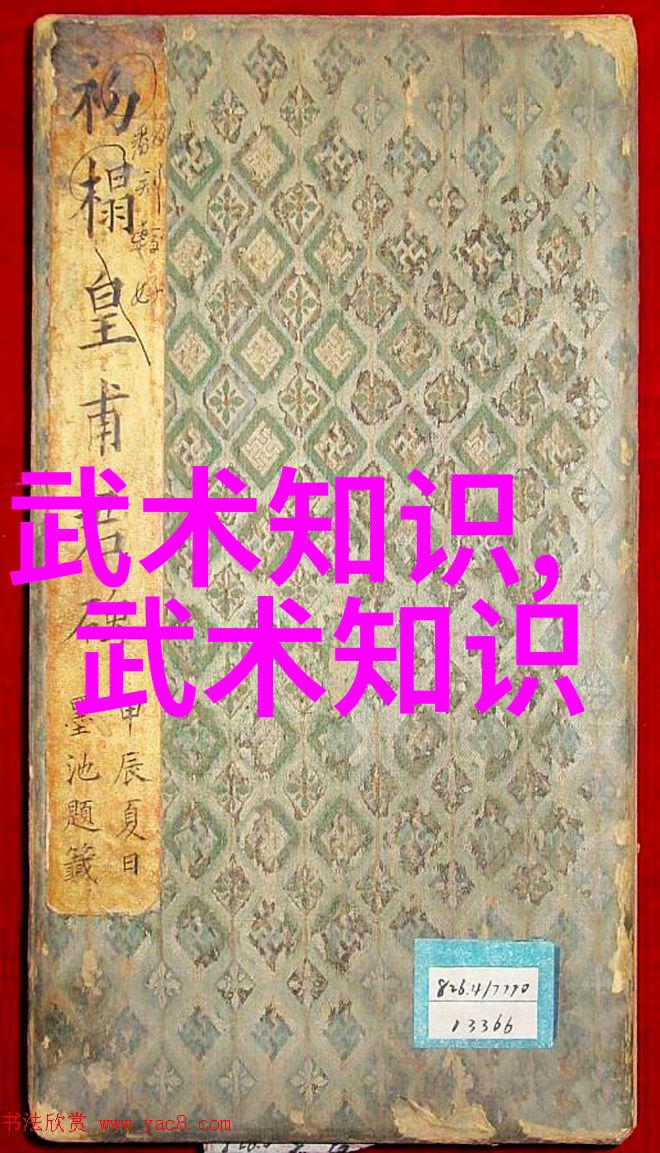 初榻皇甫君碑
翻刻較好
甲辰夏日
墨池題籤
武术知识,
武术知识
826.4/7770
13366
书法欣赏 www.yac8.com